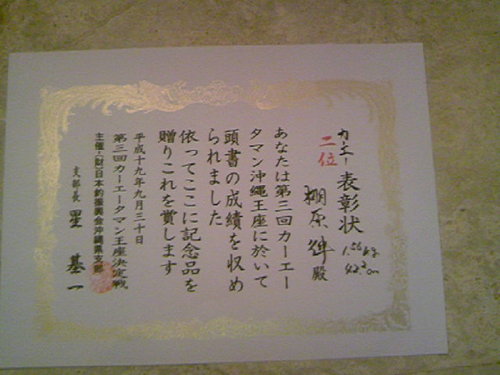 カーエー表彰状
二位
1.56kg
42.2cm
棚原 輝 殿
あなたは第三回カーエー
タマン沖縄王座に於いて
頭書の成績を収め
られました
依ってここに記念品を
贈りこれを賞します
平成十九年九月三十日
第三回カーエータマン王座決定戦
主催・(財)日本釣振興会沖縄県支部
支部長 星 基一